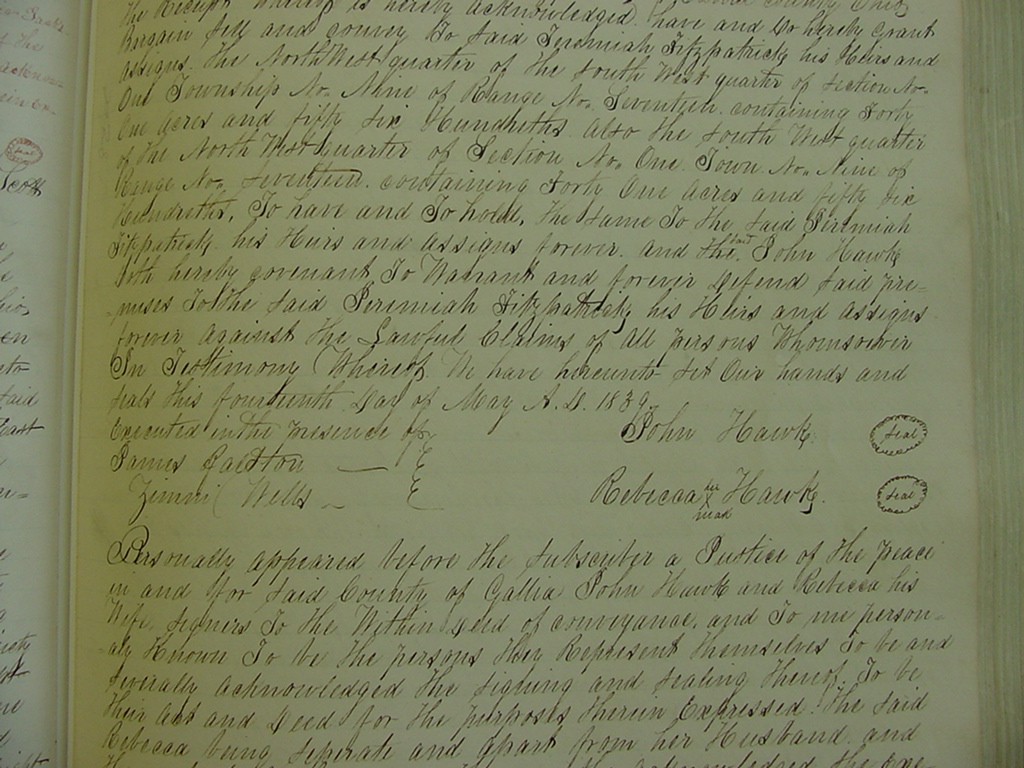 the Receipt whereof is hereby acknowledged have and Do hereby Grant
Bargain Sell and convey To Said Jeremiah Fitzpatrick his Heirs and
assigns. The North West quarter of the South West quarter of Section No.
One Township No. Nine of Range No. Seventeen. containing Forty
One acres and fifty Six Hundreths. Also the South West quarter
of the North West quarter of Section No. One Town No. Nine of
Range No. Seventeen. containing Forty One acres and fifty six
Hundreths. To have and To hold, The Same To the Said Jeremiah
Fitzpatrick his Heirs and assigns forever. and the said John Hawk
Doth hereby covenant To Warrant and forever Defend Said pre=
=mises To the Said Jeremiah Fitzpatrick his Heirs and assigns
forever against the Lawful Claims of All persons Whomsoever
In Testimony Whereof We have hereunto Set Our hands and
seals this fourteenth Day of May A.D. 1839
Executed in the presence of John Hawk Seal
James
Wells Rebecca Hawk. Seal
mark
Personally appeared before the Subscriber a Justice of the peace
in and for Said County of Gallia John Hawk and Rebecca his
Wife, Signers To the Within Deed of conveyance. and To me person=
=aly Known To be the persons they Represent themselves To be and
Severally acknowledged the Signing and Sealing thereof To be
their act and Deed for the purposes therein Expressed. The Said
Rebecca being Seperate and apart from her Husband. and
acknowledged the